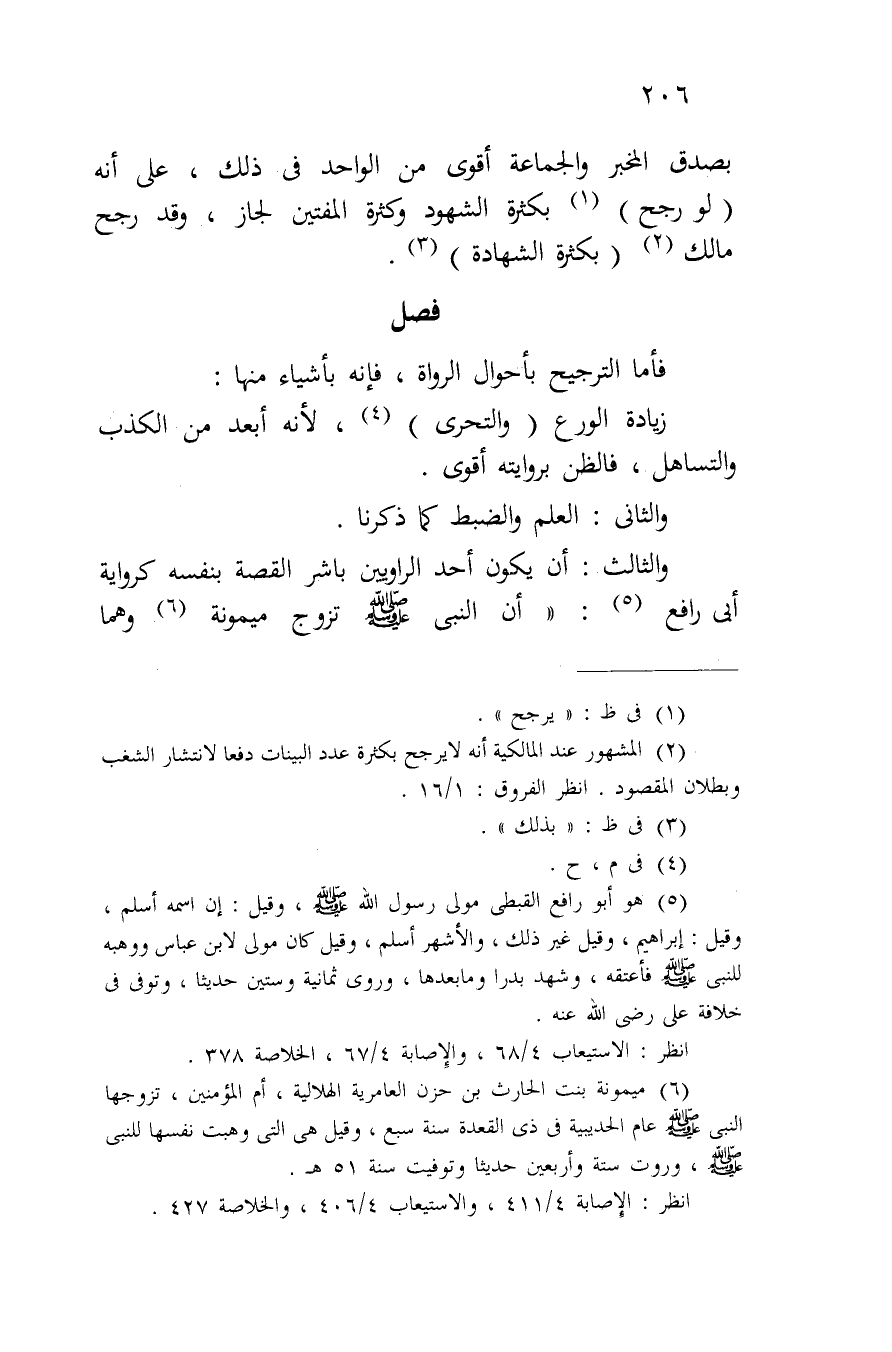 ٢٠٦
بصدق المخبر والجماعة أقوى من الواحد فى ذلك ، على أنه
( لو رجح ) (١) بكثرة الشهود وكثرة المفتين لجاز ، وقد رجح
مالك (٢) ( بكثرة الشهادة ) (٣) .
فصل
فأما الترجيح بأحوال الرواة ، فإنه بأشياء منها :
زيادة الورع ( والتحرى ) (٤) ، لأنه أبعد من الكذب
والتساهل ، فالظن بروايته أقوى .
والثانى : العلم والضبط كما ذكرنا .
والثالث : أن يكون أحد الراويين باشر القصة بنفسه كرواية
أبى رافع (٥) : « أن النبى ﷺ تزوج ميمونة (٦) وهما
(١) فى ظ : « يرجح » .
(٢) المشهور عند المالكية أنه لايرجح بكثرة عدد البينات دفعا لانتشار الشغب
وبطلان المقصود . انظر الفروق : ١٦/١ .
(٣) فى ظ : « بذلك » .
(٤) فى م ، ح .
(٥) هو أبو رافع القبطى مولى رسول الله ﷺ ، وقيل : إن اسمه أسلم ،
وقيل : إبراهيم ، وقيل غير ذلك ، والأشهر أسلم ، وقيل كان مولى لابن عباس ووهبه
للنبى ﷺ فأعتقه ، وشهد بدرا ومابعدها ، وروى ثمانية وستين حديثا ، وتوفى فى
خلافة على رضى الله عنه .
انظر : الاستيعاب ٦٨/٤ ، والإصابة ٦٧/٤ ، الخلاصة ٣٧٨ .
(٦) ميمونة بنت الحارث بن حزن العامرية الهلالية ، أم المؤمنين ، تزوجها
النبى ﷺ عام الحديبية فى ذى القعدة سنة سبع ، وقيل هى التى وهبت نفسها للنبى
ﷺ ، وروت ستة وأربعين حديثا وتوفيت سنة ٥١ هـ .
انظر : الإصابة ٤١١/٤ ، والاستيعاب ٤٠٦/٤ ، والخلاصة ٤٢٧ .